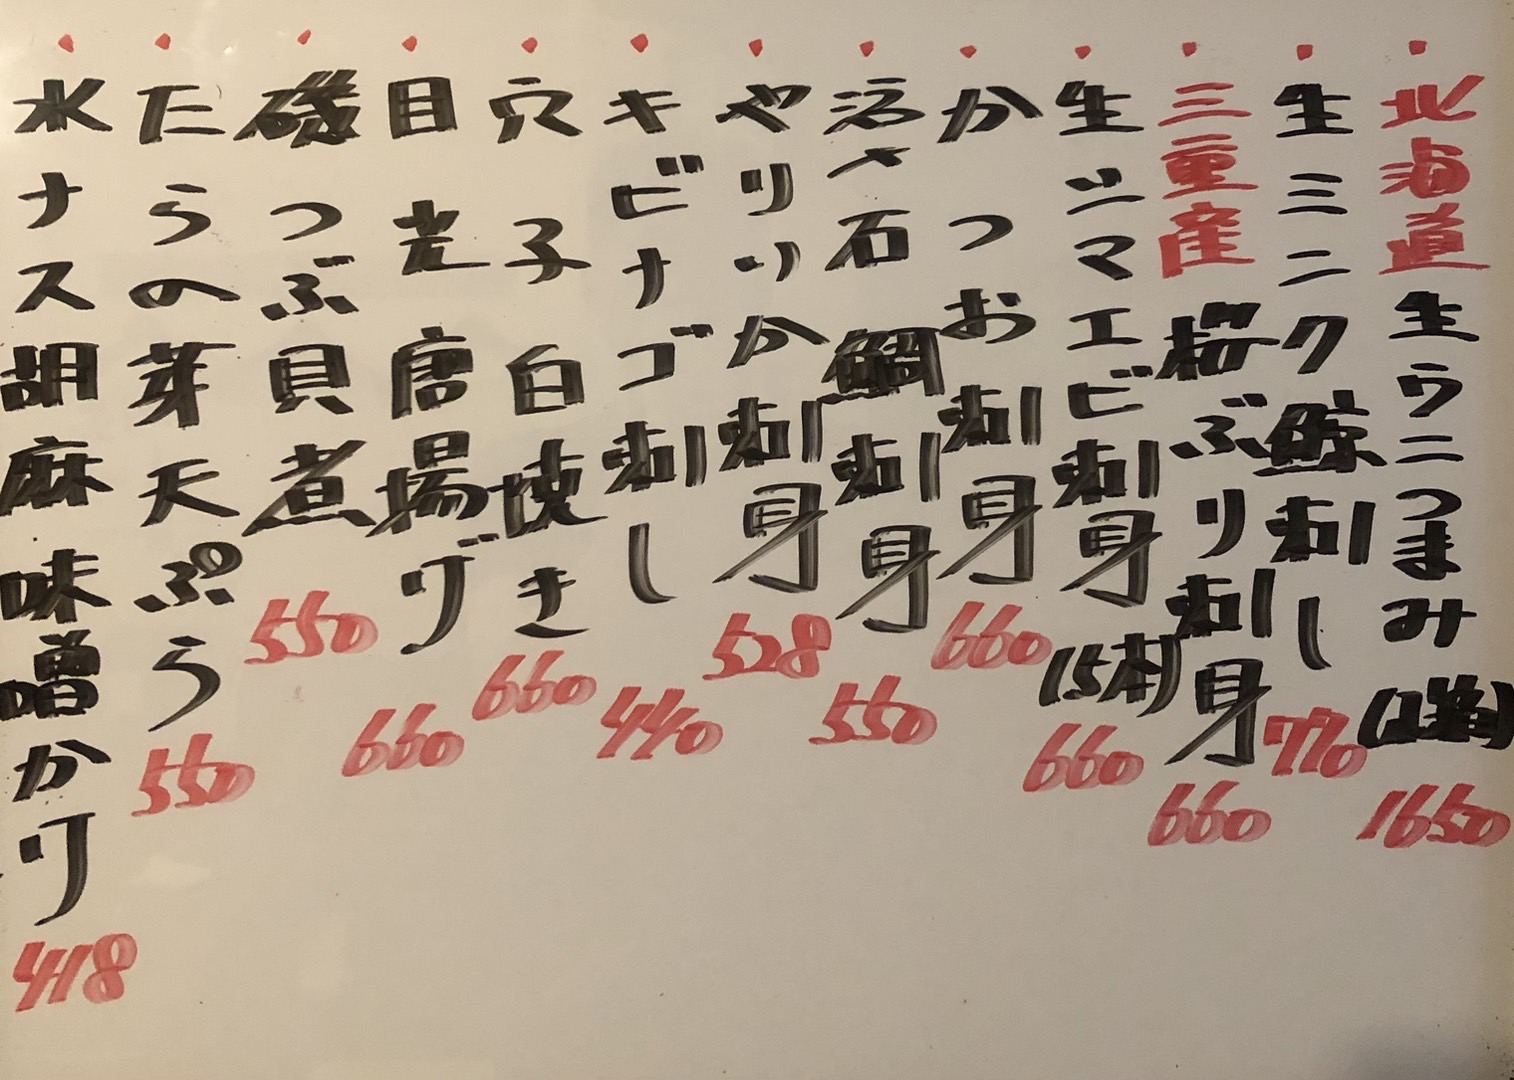 北海道生ウニつまみ 1650
生ミンク鯨刺し 770
三重産桜ぶり刺身 660
生シマエビ刺身(5本) 660
かつお刺身 660
活〆石鯛刺身 550
やりいか刺身 528
キビナゴ刺し 440
穴子白焼き 660
目光唐揚げ 660
磯つぶ貝煮 550
たらの芽天ぷら 550
水ナス胡麻味噌かけ 418